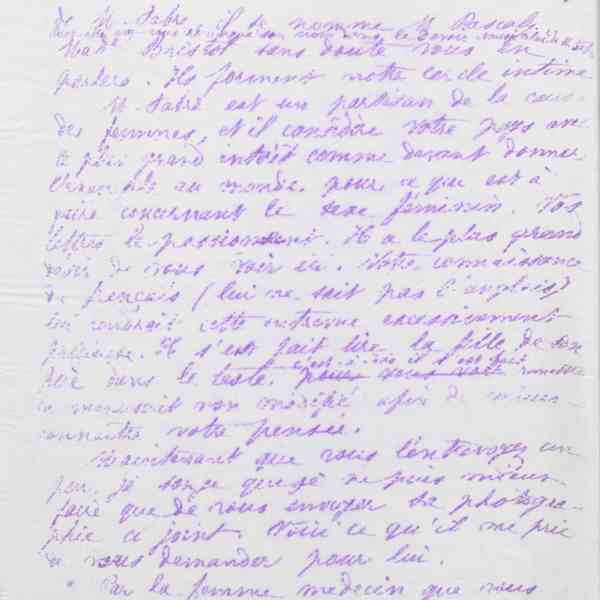 de M. Fabre, il se nomme M. Pascal.
Mad. Brissot sans doute vous en
parlera. Ils forment notre cercle intime
M. Fabre est un partisan de la cause
des femmes, et il considère votre pays avec
le plus grand intérêt comme devant donner
au monde, pour ce qui est à
faire concernant le sexe féminin. Vos
lettres le passionnent. Il a le plus grand
désir de vous voir ici. Votre connaissance
du français (lui ne sait pas l'anglais)
cette entrevue excessivement
précieuse. Il s'est fait lire la fille de son
père dans le texte. c'est à dire il s'est fait pour vous
le manuscrit non modifié afin de mieux
connaître votre pensée.
Maintenant que vous l'entrevoyez un
peu, je songe que je ne puis mieux
faire que de vous envoyer sa photogra-
phie ci joint. Voici ce qu'il me prie
de vous demander pour lui.
" Par la femme medecin que vous